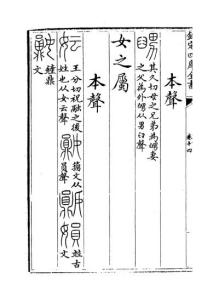 欽定四庫全書 卷十四
本聲
舅 其久切母之兄弟為舅妻
之父為外舅从男臼聲
女之屬
本聲
妘 王分切祝融之後
姓也从女云聲
籀文从
員聲
古
文
鐘鼎
文